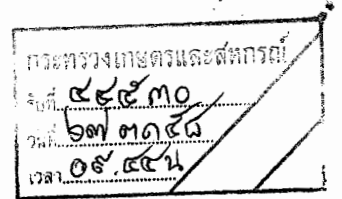 กระทรวงเกษตรและสหกรณ์
รับที่ ๔๔๕๓๐
วันที่
เวลา ๐๙.๔๔ น